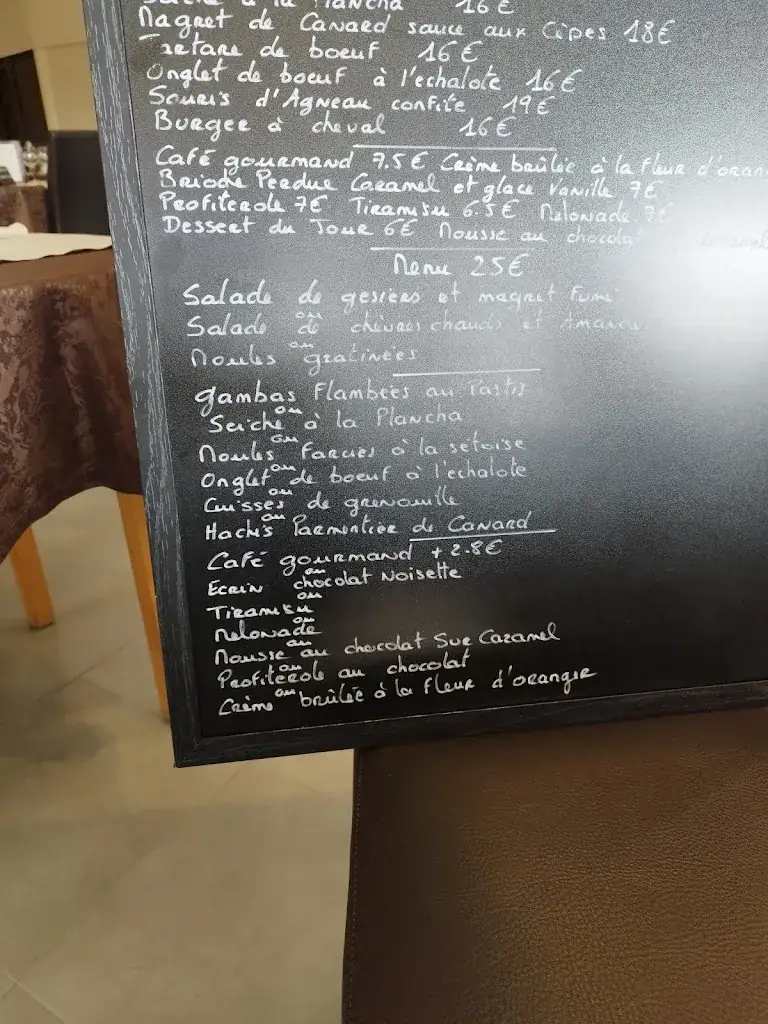 à la Plancha 16€
Magret de Canard sauce aux Cèpes 18€
Tartare de boeuf 16€
Onglet de boeuf à l'echalote 16€
Souris d'Agneau confite 19€
Burger à cheval 16€
Café gourmand 7.5€ Crème brûlée à la fleur d'oran
Brioche Perdue Caramel et glace Vanille 7€
Profiterole 7€ Tiramisu 6.5€ Melonade 7€
Dessert du Jour 6€ Mousse au chocolat
Menu 25€
Salade de gesiers et magret Fumé
ou
Salade de chèvres chauds et
ou
Moules gratinées
gambas Flambées au Pastis
ou
Seiche à la Plancha
ou
Moules Farcies à la setoise
ou
Onglet de boeuf à l'echalote
ou
Cuisses de grenouille
ou
Hachis Parmentier de Canard
Café gourmand + 2.8€
ou
Ecrin chocolat Noisette
ou
Tiramisu
ou
Melonade
ou
Mousse au chocolat Sur Caramel
ou
Profiterole au chocolat
ou
Crème brûlée à la fleur d'oranger